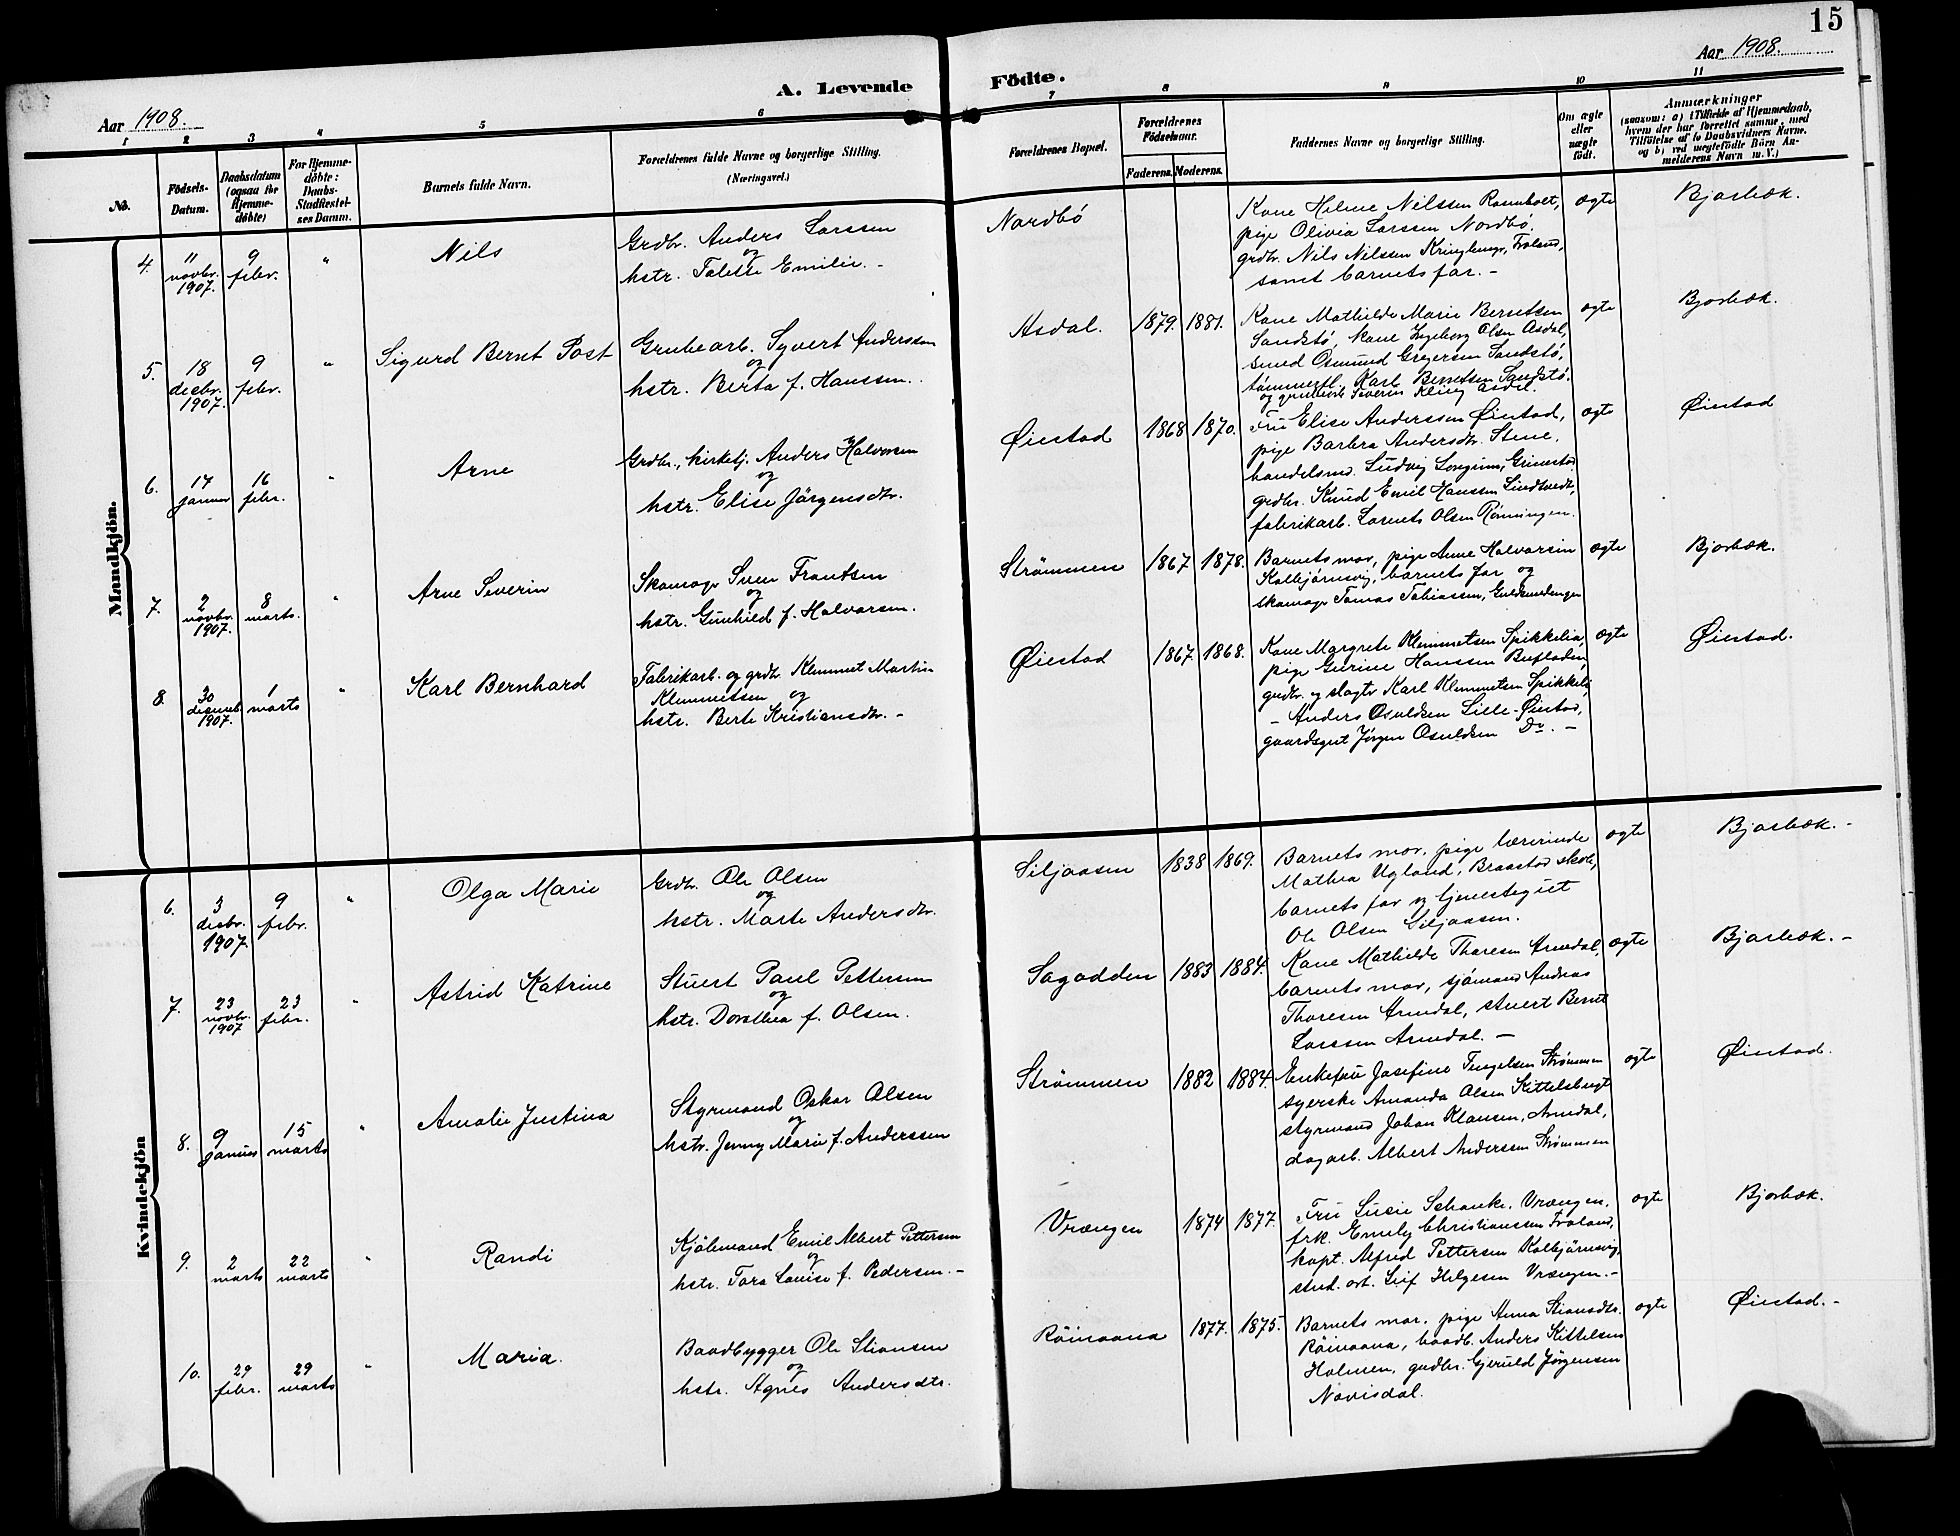 15
Aar 1908.
A. Levende
Födte.
Aar 1908.
1
2
3
4
5
6
7
8
9
10
11
No.
Födsels-
Datum.
Daabsdatum
(ogsaa for
Hjemme-
döbte)
For Hjemme-
döbte:
Daabs-
Stadfæstel-
ses Datum.
Barnets fulde Navn.
Forældrenes fulde Navne og borgerlige Stilling.
(Næringsvei.)
Forældrenes Bopæl.
Forældrenes
Födselsaar.
Faderens. Moderens.
Faddernes Navne og borgerlige Stilling.
Om ægte
eller
uægte
födt.
Anmærkninger
(saasom: a) i Tilfælde af Hjemmedaab,
hvem der har forrettet samme, med
Tilföielse af to Daabsvidners Navne.
og b) ved uægtefödte Börn An-
melderens Navn m. V.)
Mandkjön.
4.
11
novbr.
1907.
9
febr.
"
Nils
Grdbr. Anders Larssen
og
hstr. Talette Emilie. -
Nordbö
Kone Helene Nilssen
pige Olivia Larssen Nordbø.
grdbr. Nils Nilssen Froland,
samt barnets far. -
ægte
Bjorbæk.
5.
18
desbr.
1907.
9
febr.
"
Sigurd Bernt Post
Grubearb. Syvert Anderssen
og
hstr. Berta f. Hanssen.
Asdal.
1879. 1881.
Kone Mathilde Marie Berntsen
Sandstø, kone Ingeborg Olsen Asdal,
smed Osmund Gregersen Sandstø,
tømmerfl. Karl Berntsen Sandstø.
og grubearb. Severin Asdal.
ægte
Bjorbæk.
6.
17
januar
16
febr.
"
Arne
Grdbr., kirketj. Anders Halvorsen
og
hstr. Elise Jörgensdtr.
Øiestad
1868 1870.
Fru Elise Anderssen Øiestad,
pige Barbra Andersdtr. Stene,
handelsmd. Ludvig Longum,
grdbr. Knud Emil Hanssen Lindtveit,
fabrikarb. Olsen Rønningen.
ægte
Øiestad
7.
2
novbr.
1907.
8
marts.
"
Arne Severin
Skomager Sven Frantsen
og
hstr. Gunhild f. Halvorsen.
Strömmen
1867 1878.
Barnets mor, pige Anne Halvorsen
Kolbjörnsvig, barnets far og
skomager Tomas Tobiassen,
ægte
Bjorbæk.
8.
30
desemb.
1907.
1
marts
"
Karl Bernhard
Fabrikarb. og grdbr. Klemmet Martin
Klemmetsen og
hstr. Berte Kristiansdtr. -
Øiestad
1867. 1868.
Kone Margrete Klemmetsen Spikkelia,
pige Gurine Hanssen
grdbr. og slagter Karl Klemmetsen Spikkeli
- Anders Osuldsen Lille-Øiestad,
gaardsgut Jörgen Osuldsen Do. -
ægte
Øiestad.
Kvindekjön
6.
3
desbr.
1907
9
febr.
"
Olga Marie
Grdbr. Ole Olsen
og
hstr. Marte Andersdtr.
Siljaasen
1838 1869.
Barnets mor, pige lærerinde
Mathea Ugland, Braastad skole,
barnets far og tjenestegut
Ole Olsen Siljaasen.
ægte
Bjorbæk. -
7.
23
novbr.
1907
23
febr.
"
Astrid Katrine
Stuert Paul Pettersen
og
hstr. Dorothea f. Olsen.
Sagodden
1883 1884.
Kone Mathilde Thoresen Arendal,
barnets mor, sjömand Andreas
Thoresen Arendal, stuert Bernt
Larssen Arendal. -
ægte
Bjorbæk. -
8.
9
januar
15
marts
"
Amalie Justina
Styrmand Oskar Olsen
og
hstr. Jenny Marie f. Anderssen
Strömmen
1882 1884.
Enkefru Josefine Tengelsen Strömmen
syerske Amanda Olsen Kittelsbugt
styrmand Johan Klausen, Arendal,
dagarb. Albert Anderssen Strömmen
ægte
Øiestad.
9.
2
marts
22
marts
"
Randi
Kjöbmand Emil Albert Pettersen
og
hstr. Tora Louise f. Pedersen. -
Vrængen
1874 1877
Fru Susie Schanke, Vrængen,
frk. Emily Christianssen Froland,
kapt. Alfred Pettersen Kolbjörnsvig,
stud. art. Leif Helgesen Vrængen. -
ægte
Bjorbæk.
10.
29
febr.
29
marts
"
Maria.
Baadbygger Ole Stiansen
og
hstr. Agnes Andersdtr.
Röinaana
1877. 1875.
Barnets mor, pige Anna Stiansdtr.
Röinaana, baadb. Anders Kittelsen
Holmen, grdbr. Gjeruld Jörgensen
Navisdal.
ægte
Øiestad. -